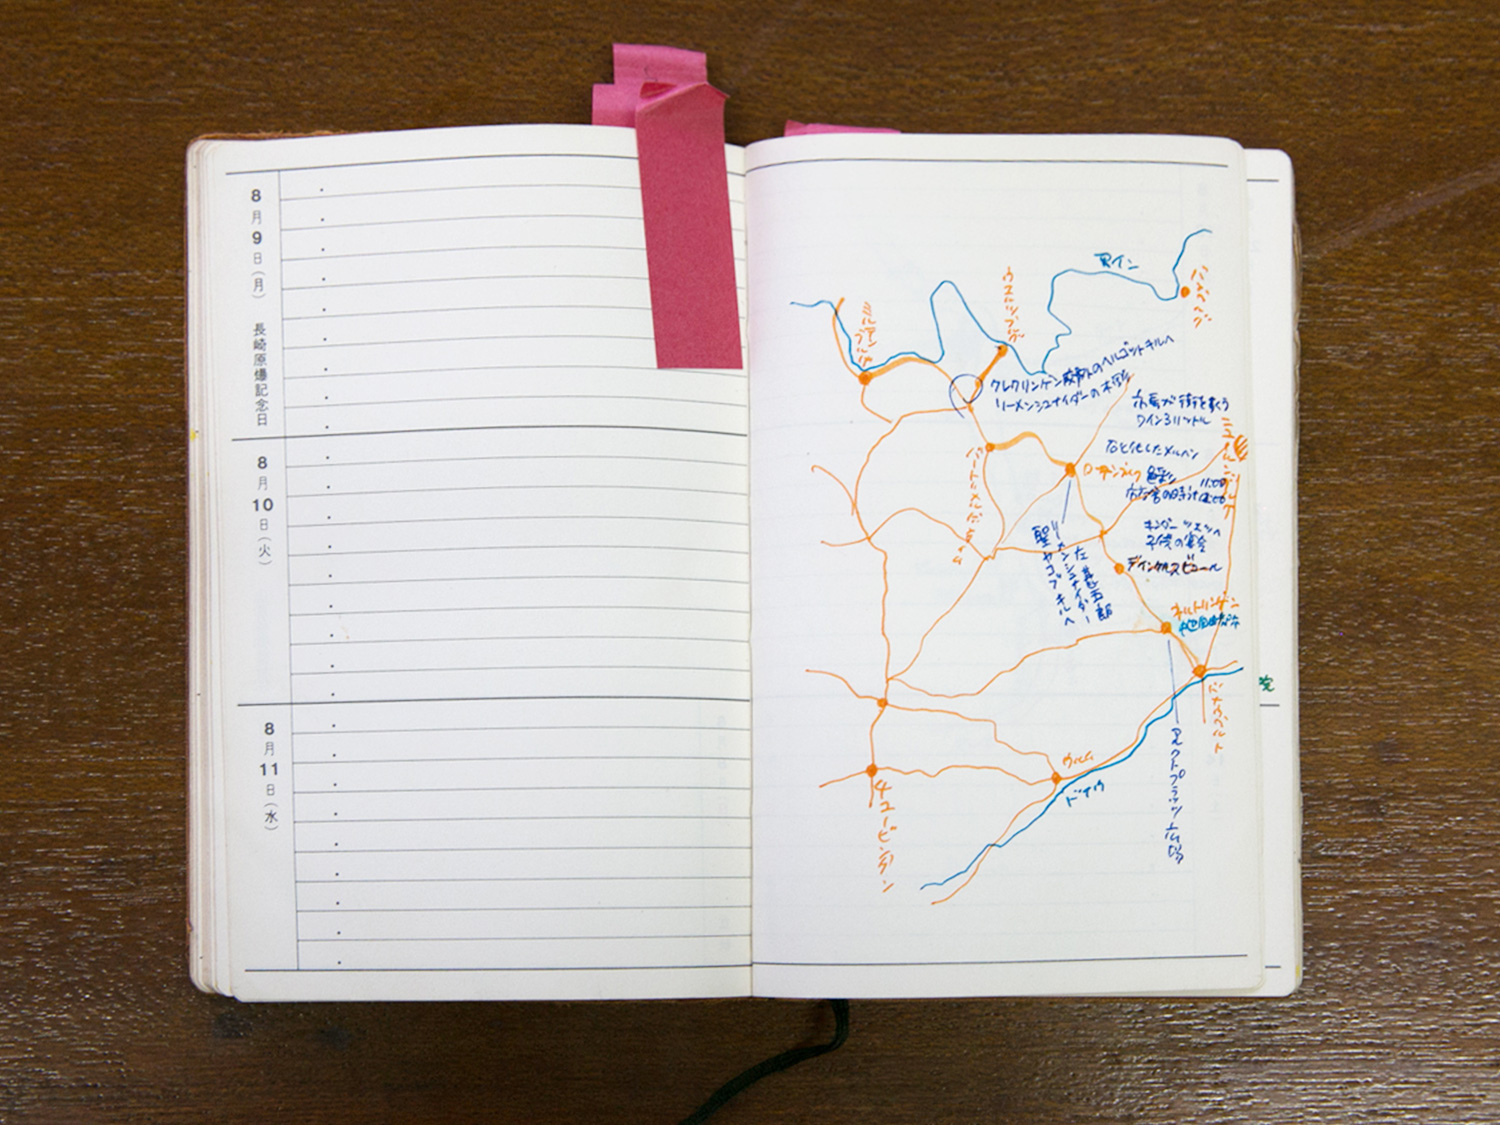 8月9日(月) 長崎原爆記念日
8月10日(火)
8月11日(水)
マイン
バンベルグ
ウュルツブルグ
ミルテンブルグ
クレクリンゲン
のヘルゴットキルヘ
リーメンシュナイダーの木彫
市長が街を救う
ワイン3リットル
石と化したメルヘン
ローテンブルグ
11:00
ニュールンベルグ
キンダー ツェッヘ
子供の宴会
ディンケルスビュール
聖ヤコブキルヘ
リーメンシュナイダー
ネルトリンゲン
ドナウヴェルト
マルクトプラッツ広場
ウルム
ドナウ
チュービンゲン